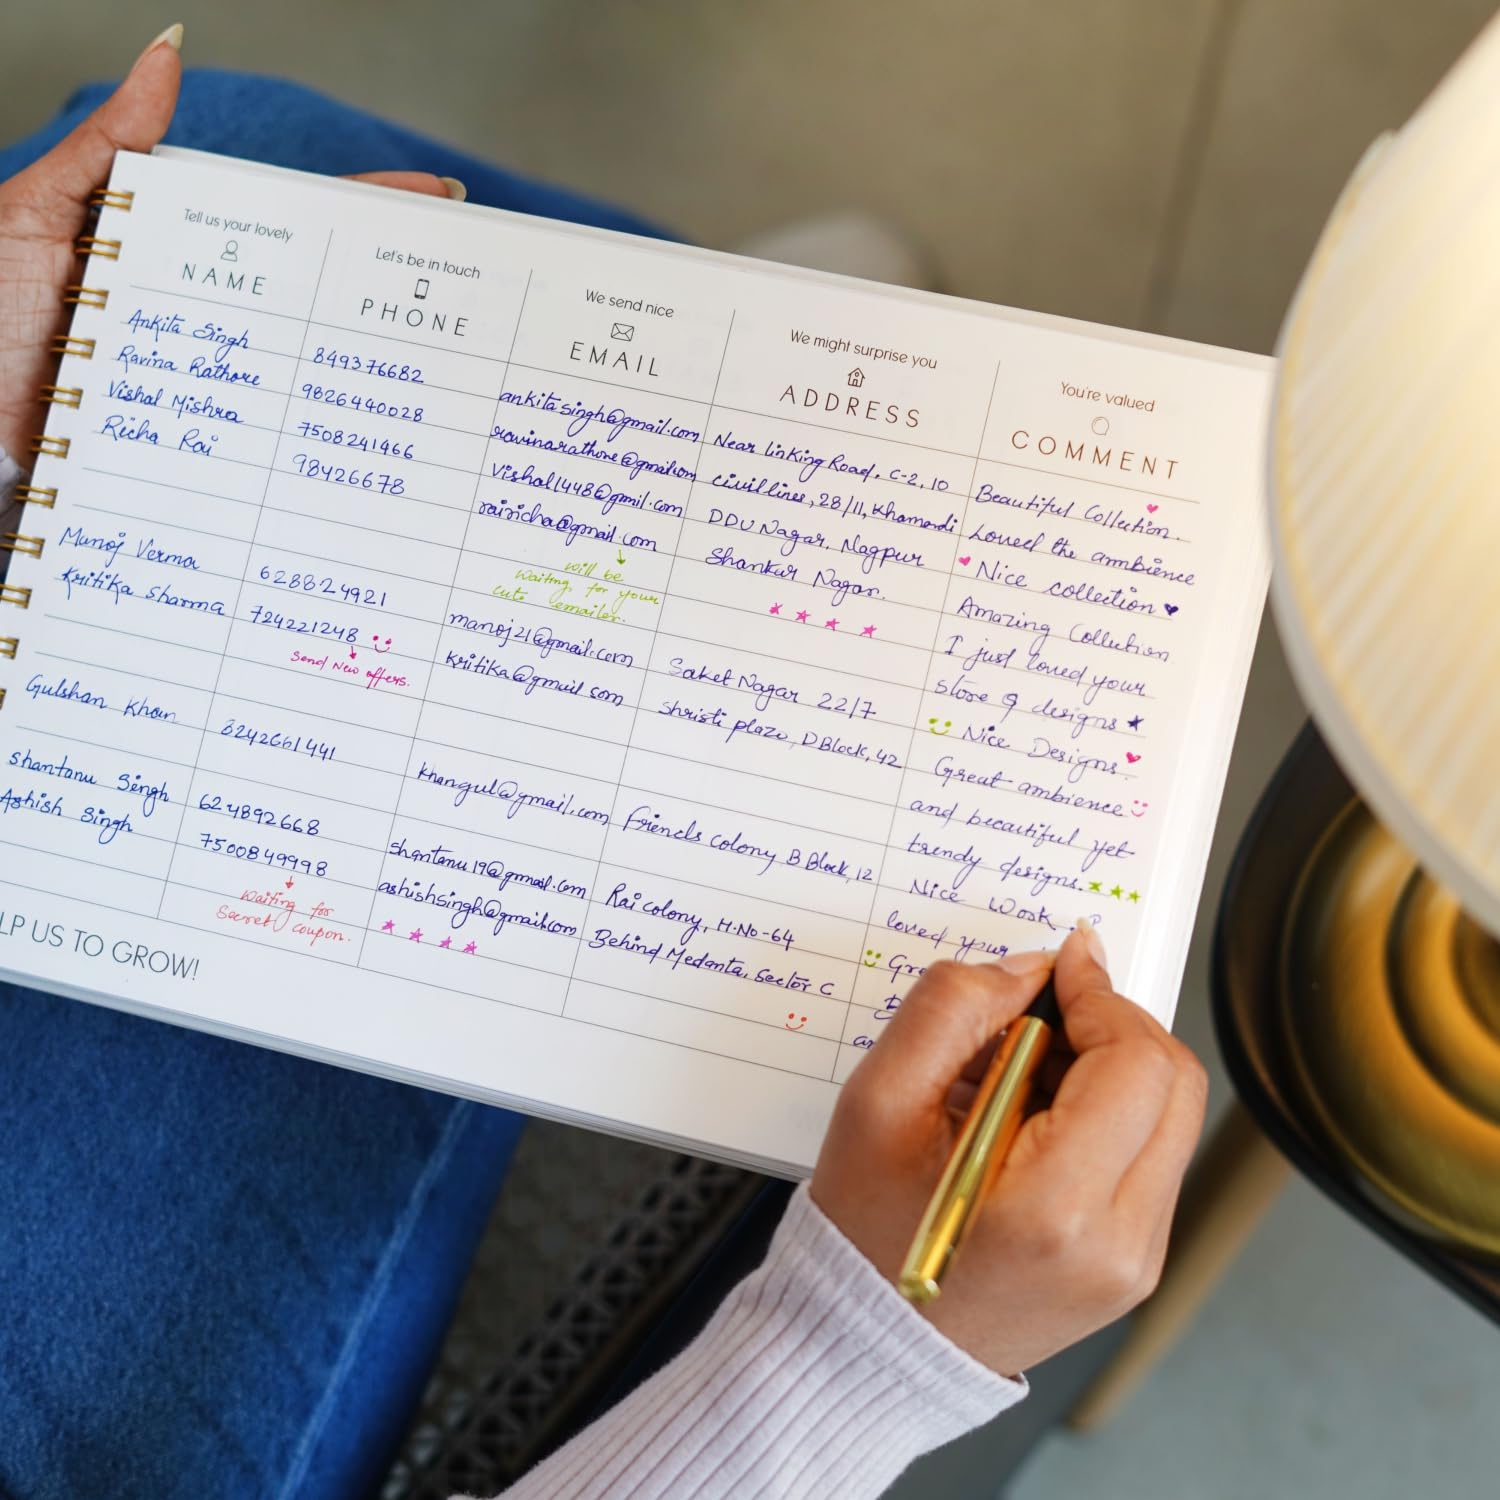 Tell us your lovely
NAME
Let's be in touch
PHONE
We send nice
EMAIL
We might surprise you
ADDRESS
You're valued
COMMENT
Ankita Singh
849376682
ankitasingh@gmail.com
Near linking Road, C-2, 10
Beautiful Collection.
Ravina Rathore
9826440028
ravinarathore@gmail.com
civil lines, 28/11, Khamardi
Loved the ambience
Vishal Mishra
7508241466
Vishal1448@gmil.com
DDU Nagar, Nagpur
Nice collection
Richa Rai
98426678
rairicha@gmail.com
Shankar Nagar.
Amazing Collection
will be
waiting for your
cute emailer.
I just loved your
store & designs
Manoj Verma
628824921
manoj21@gmail.com
Saket Nagar 22/7
Nice Designs.
Kritika Sharma
724221248
Kritika@gmail com
Shristi plaza, D Block, 42
Great ambience
Send New offers.
and beautiful yet
trendy designs.
Gulshan Khan
6242661441
khangul@gmail.com
Friends colony B Block, 12
Nice Work
loved your
Shantanu Singh
624892668
shantanu19@gmail.com
Rai colony, H.No-64
Gre
Ashish Singh
7500849998
ashishsingh@gmail.com
Behind Medanta, Sector C
Waiting for
Secret coupon.
LP US TO GROW!